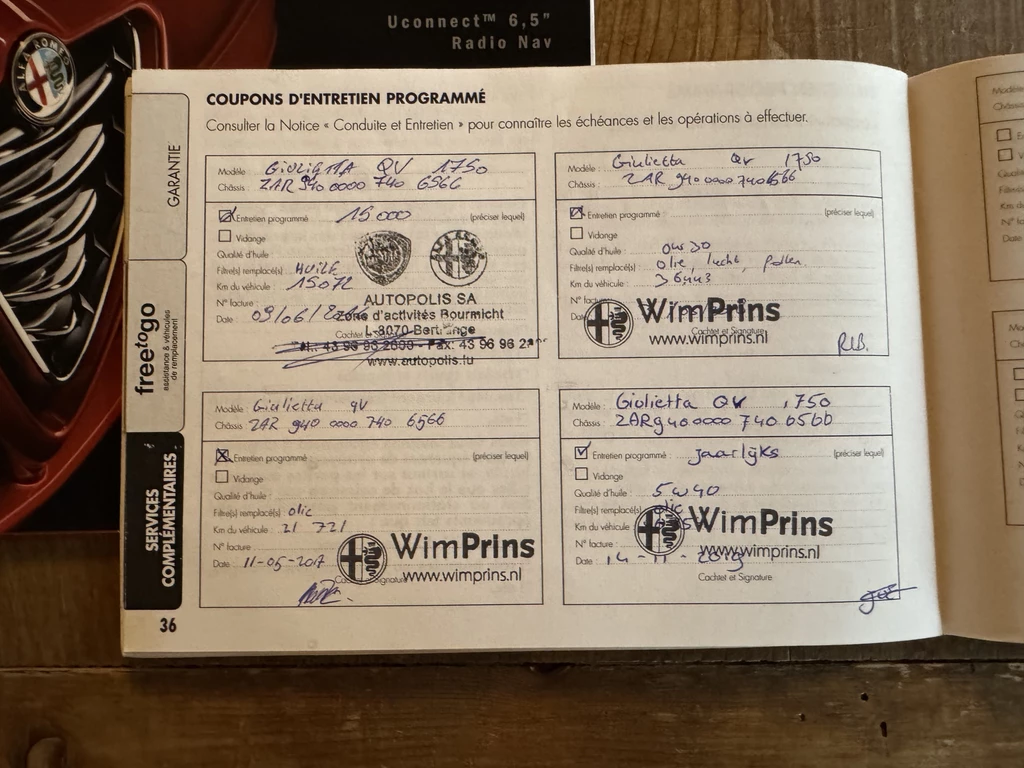 Uconnect™ 6,5"
Radio Nav
ALFA ROMEO
COUPONS D'ENTRETIEN PROGRAMMÉ
Consulter la Notice « Conduite et Entretien » pour connaître les échéances et les opérations à effectuer.
GARANTIE
freetogo
assistance & véhicules
de remplacement
SERVICES
COMPLÉMENTAIRES
36
Modèle : GIULIETTA QV 1750
Châssis : ZAR 940 0000 740 6566
Entretien programmé 15 000 (préciser lequel)
Vidange
Qualité d'huile :
Filtre(s) remplacé(s) : HUILE
Km du véhicule : 15072
N° facture :
Date : 09/06/
AUTOPOLIS SA
Zone d'activités Bourmicht
L-8070 Bertrange
Fax: 43 96 96
www.autopolis.lu
Modèle : Giulietta QV 1750
Châssis : ZAR 940 0000 740 6566
Entretien programmé : (préciser lequel)
Vidange
Qualité d'huile : 0W30
Filtre(s) remplacé(s) : olie, lucht, pollen
Km du véhicule : 36443
N° facture
WimPrins
Cachet et Signature
www.wimprins.nl
Modèle : Giulietta QV
Châssis : ZAR 940 0000 740 6566
Entretien programmé : (préciser lequel)
Vidange
Qualité d'huile :
Filtre(s) remplacé(s) : olie
Km du véhicule : 21 721
N° facture :
Date : 11-05-2017
WimPrins
www.wimprins.nl
Modèle : Giulietta QV 1750
Châssis : ZAR940 0000 740 6566
Entretien programmé : jaarlijks (préciser lequel)
Vidange
Qualité d'huile : 5w40
Filtre(s) remplacé(s) : olie
Km du véhicule
N° facture :
Date : 14-11-2019
WimPrins
www.wimprins.nl
Cachet et Signature